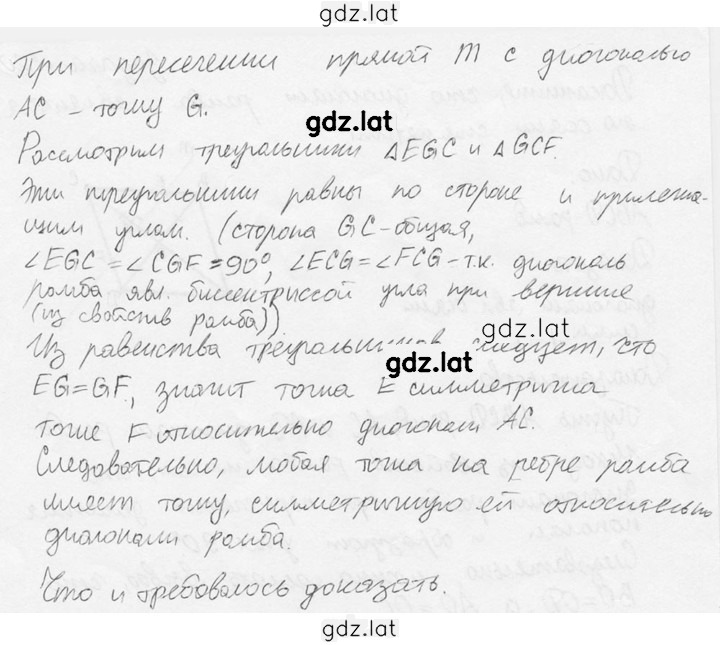 gdz.lat
При пересечении прямой m с диагональю
АС – точку G.
gdz.lat
Рассмотрим треугольники △EGC и △GCF.
Эти треугольники равны по стороне и прилежа-
щим углам. (сторона GC-общая,
∠EGC = ∠CGF = 90°, ∠ECG = ∠FCG – т.к. диагональ
ромба явл. биссектриссой угла при вершине
(из свойств ромба))
gdz.lat
Из равенства треугольников следует, что
gdz.lat
EG = GF, значит точка E симметрична
точке F относительно диагонали АС.
Следовательно, любая точка на ребре ромба
имеет точку, симметричную ей относительно
диагонали ромба.
Что и требовалось доказать.
gdz.lat